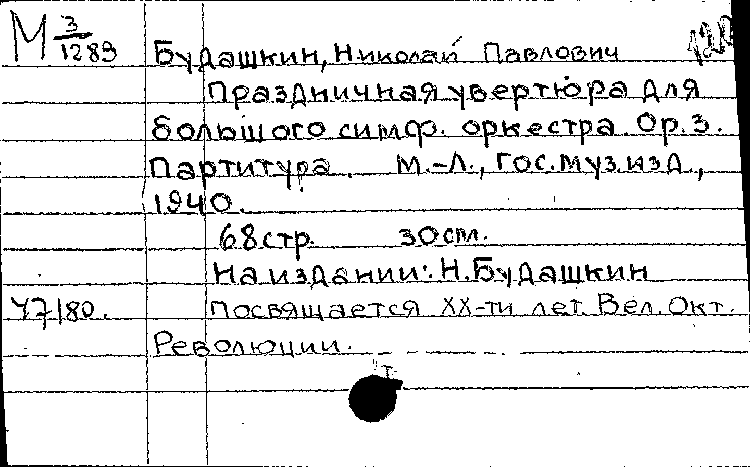 М 3/1289
Будашкин, Николай Павлович
Праздничная увертюра для
большого симф. оркестра. Ор. 3.
Партитура. М.-Л., Гос. муз. изд.,
1940.
68 стр. 30 см.
На издании: Н. Будашкин
У7180. Посвящается XX-ти лет. Вел. Окт.
Революции.